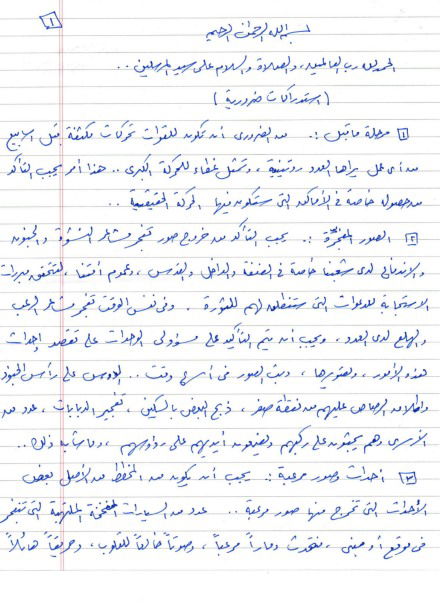 ١
بسم الله الرحمن الرحيم
الحمد لله رب العالمين، والصلاة والسلام على سيد المرسلين ..
(استدراكات ضرورية)
١ مرحلة ما قبل :. من الضروري أن تكون للقوات تحركات مكثفة قبل أسابيع
من أي عمل يراها العدو روتينية، وتشكل غطاء للحركة الكبرى .. هذا أمر يجب التأكد
من حصوله خاصة في الأماكن التي ستكون فيها الحركة الحقيقية ..
٢ الصور المفجرة :. يجب التأكد من خروج صور تفجر مشاعر النشوة والجنون
والاندفاع لدى شعبنا خاصة في الضفة والداخل والقدس، وعموم أمتنا، لتتحقق مبررات
الاستجابة للدعوات التي ستنطلق لهم للثورة. وفي نفس الوقت تفجر مشاعر الرعب
والهلع لدى العدو، ويجب أن يتم التأكيد على مسؤولي الوحدات على تقصد إحداث
هذه الأمور، وتصويرها، وبث الصور في أسرع وقت .. الدوس على رأس الجنود
وإطلاق الرصاص عليهم من نقطة صفر، ذبح البعض بالسكين، تفجير الدبابات، عدد من
الأسرى وهم يجثون على ركبهم ويضعون أيديهم على رؤوسهم، وما شابه ذلك ..
٣ أحداث وصور مرعبة :. يجب أن يكون من المخطط من الأصل بعض
الأحداث التي تخرج منها صور مرعبة .. عدد من السيارات المفخخة الملتهبة التي تنفجر
في موقع أو مبنى، فتحدث دماراً مرعباً، وصوتاً خالعاً للقلوب، وحريقاً هائلاً